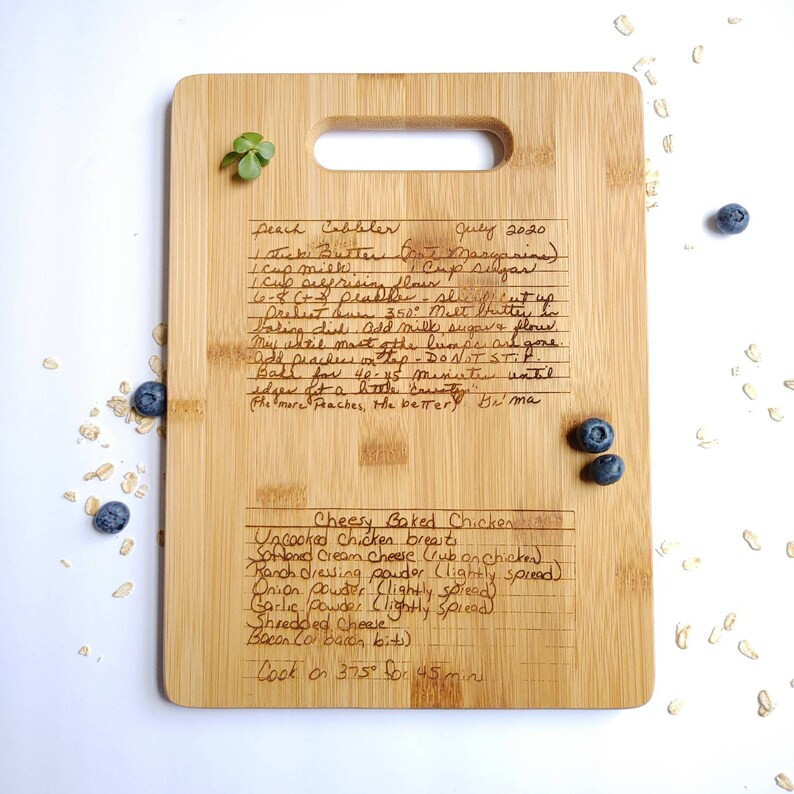 Peach Cobbler July 2020
1 stick Butter (not Margarine)
1 cup milk 1 cup sugar
1 cup selfrising flour
6-8 (+-) peaches - sliced/cut up
Preheat oven 350° Melt butter in
baking dish add milk, sugar & flour.
Mix until most of the lumps are gone.
add peaches on top - DO NOT STIR.
Bake for 40-45 minutes until
edges get a little "crusty"
(the more Peaches, the better) Gr'ma
Cheesy Baked Chicken
Uncooked chicken breasts
Softened Cream Cheese (rub on chicken)
Ranch dressing powder (lightly spread)
Onion powder (lightly spread)
Garlic powder (lightly spread)
Shredded Cheese
Bacon (or bacon bits)
Cook on 375° for 45 min